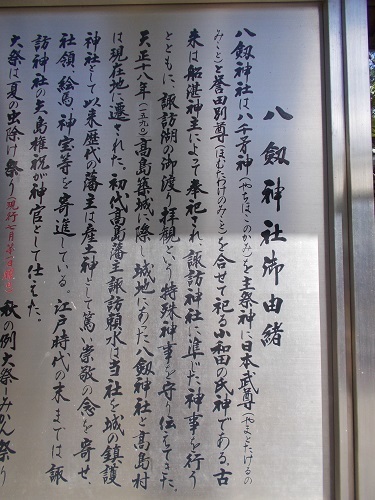 八劔神社御由緒
八劔神社は八千矛神(やちほこのかみ)を主祭神に日本武尊(やまとたけるの
みこと)と誉田別尊(ほむたわけのみこと)を合せて祀る小和田の氏神である古
来は船湛神主によって奉祀され、諏訪神社に準じた神事を行う
とともに、諏訪湖の御渡り拝観という特殊神事を守り伝えてきた。
天正十八年(一五九〇)高島築城に際し城地にあった八劔神社と高島村
は現在地に遷された。初代高島藩主諏訪頼水は当社を城の鎮護
神社として以来歴代の藩主は産土神として篤い崇敬の念を寄せ、
社領、絵馬、神宝等を寄進している。江戸時代の末までは諏
訪神社の矢島権祝が神官として仕えた。
大祭は夏の虫除け祭り 秋の例大祭